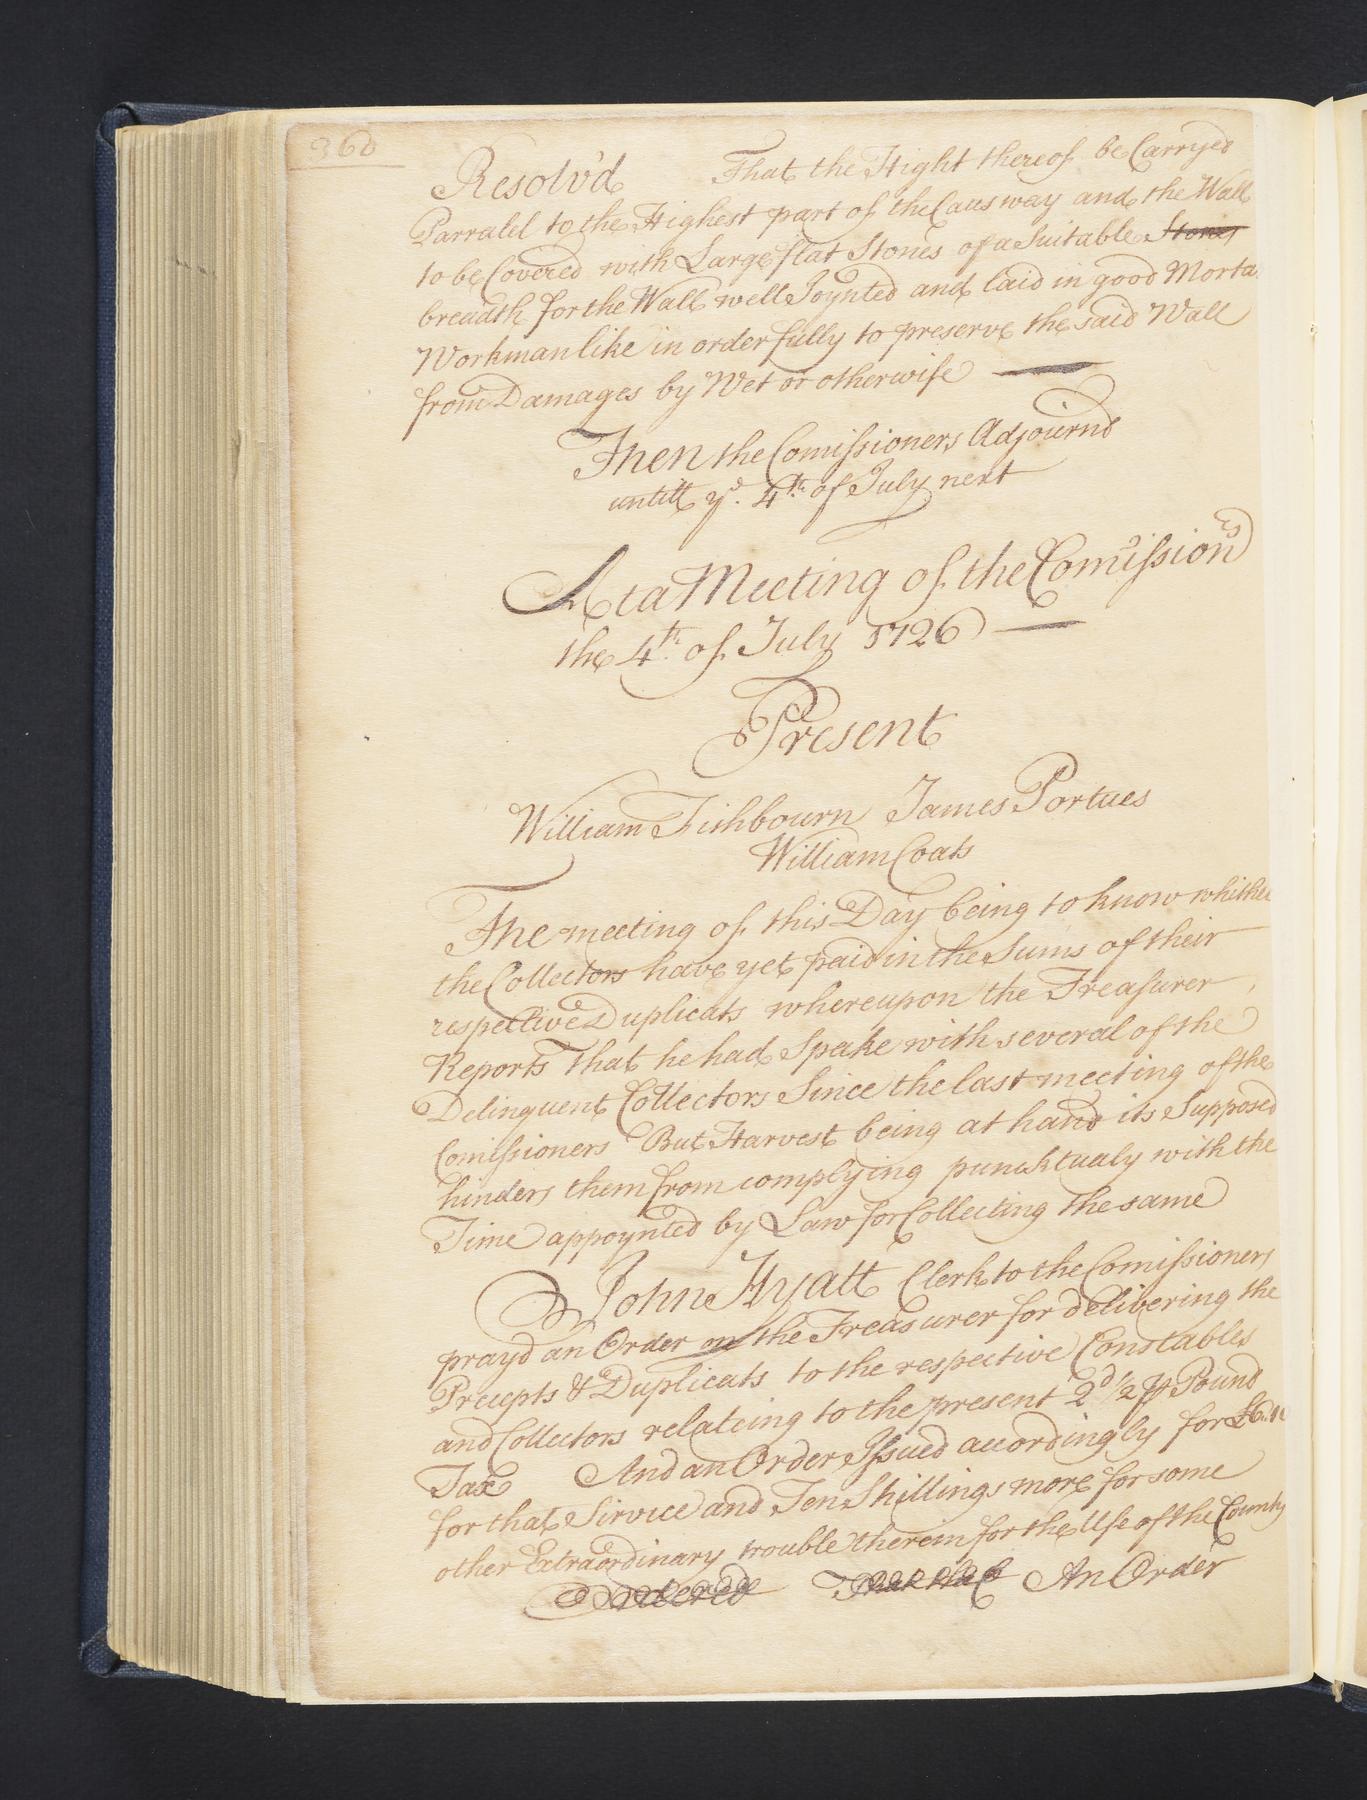 360
Resolv'd That the Hight thereof be Carryed
Parralel to the Highest part of the Causway and the Wall
to be Covered with Large flat Stones of a Suitable Stones
breadth for the Wall well Joynted and laid in good Morta
Workmanlike in order fully to preserve the said Wall
from Damages by Wet or otherwise
Then the Comissioners Adjournd
untill ye. 4th of July next
At a Meeting of the Comissioners
the 4th of July 1726
Present
William Fishbourn James Portues
William Coats
The meeting of this Day being to know whither
the Collectors have yet paid in the Sums of their
respective Duplicats whereupon the Treasurer
Reports That he had Speke with several of the
Delinquent Collectors Since the last meeting of the
Comissioners But Harvest being at hand its Supposed
hinders them from complying puncktualy with the
Time appoynted by Law for Collecting the same
John Hyatt Clerk to the Comissioners
prayd an Order on the Treasurer for delivering the
Precepts & Duplicats to the respective Constables
and Collectors relateing to the present 2d 1/2 ⅌ Pound
Tax And an Order Issued accordingly for
for that Service and Ten Shillings more for some
other Extraordinary trouble therein for the Use of the County
Ordered That the An Order